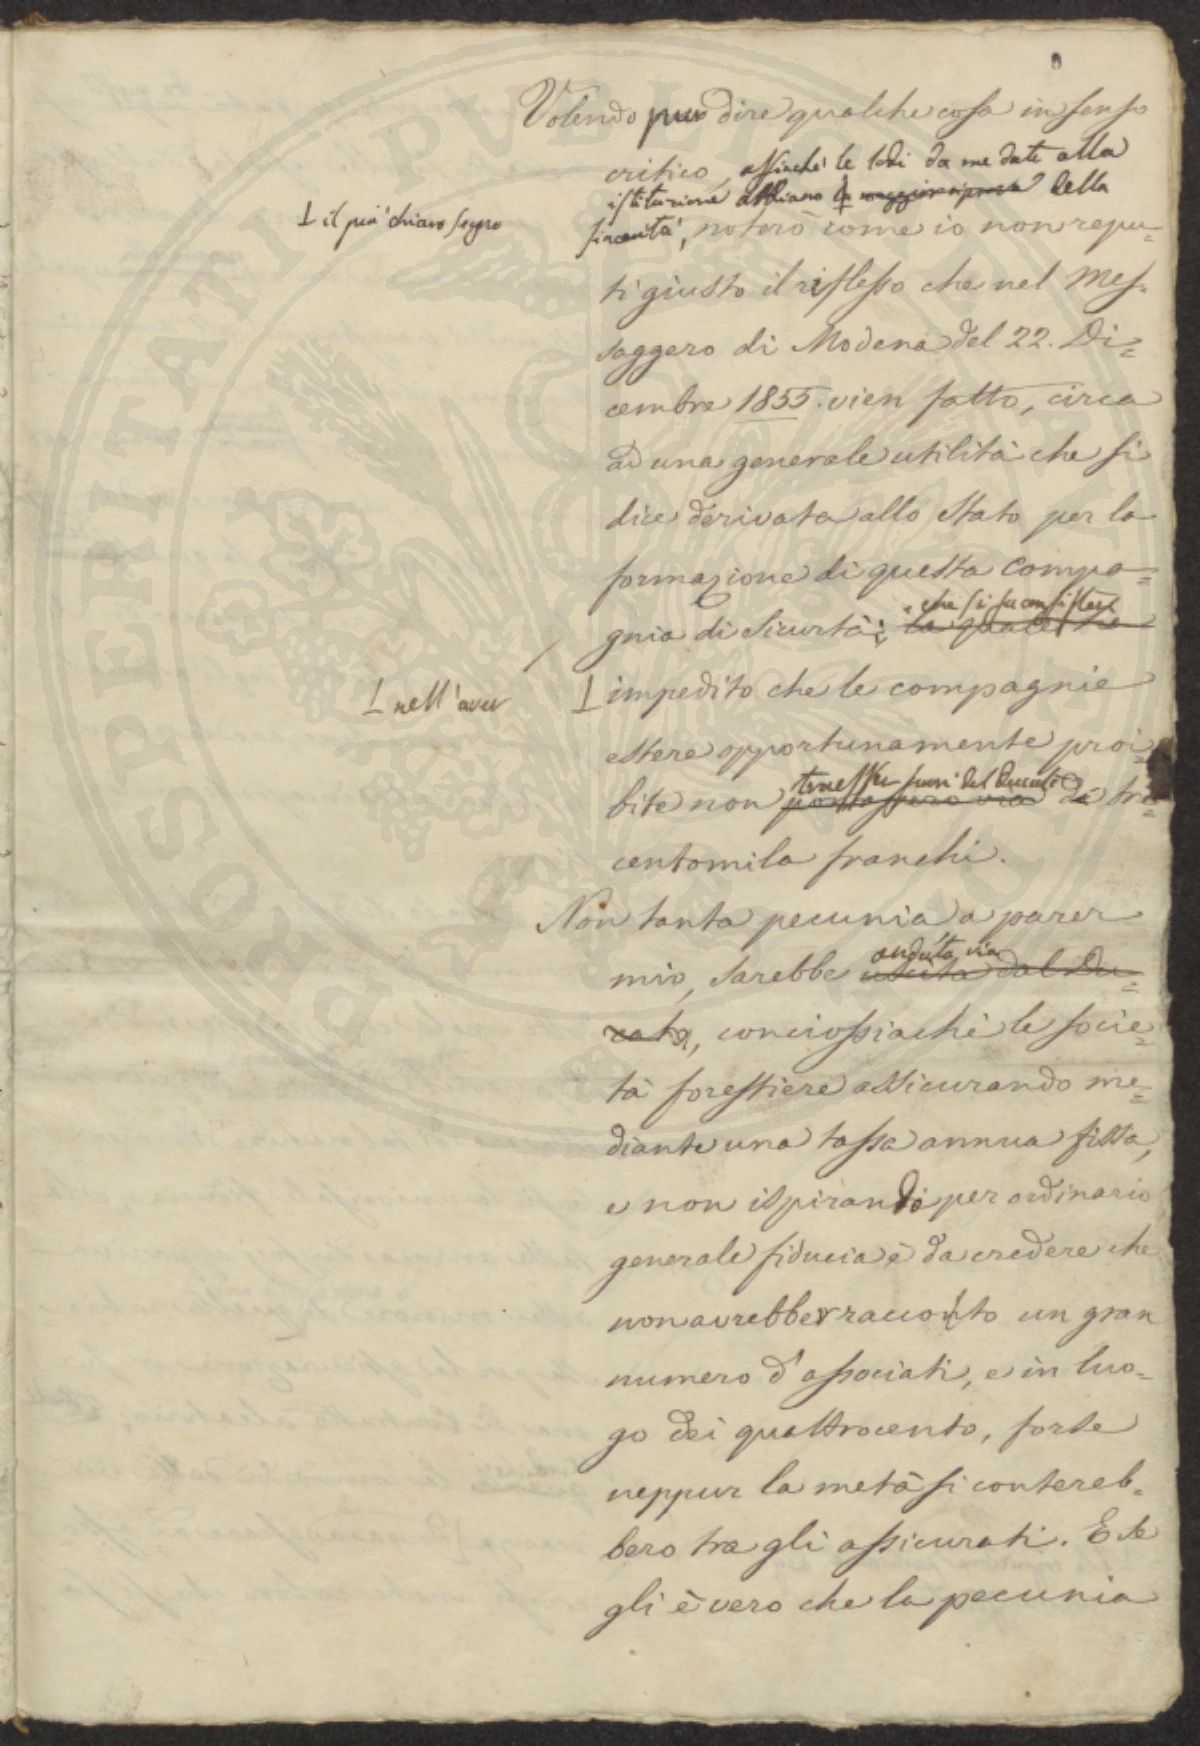 Volendo pur dire qualche cosa in senso
critico, affinché le lodi da me date alla
istituzione abbiano la maggior riprova della
⊥ il più chiaro segno
sincerità, noterò come io non repu=
ti giusto il riflesso che nel Mes=
saggero di Modena del 22. Di=
cembre 1855. vien fatto, circa
ad una generale utilità che si
dice derivata allo Stato per la
formazione di questa Compa=
che si fa consistere
gnia di Sicurtà; la quale ha
⊥ nell'aver
⊥ impedito che le compagnie
estere opportunamente proi=
traesser fuori del Ducato
bite non portassero via da tre
centomila franchi.
Non tanta pecunia, a parer
andata via
mio, sarebbe uscita dal Du=
cato, conciossiachè le socie=
tà forestiere assicurando me=
diante una tassa annua fissa,
e non ispirando per ordinario
generale fiducia è da credere che
non avrebber raccolto un gran
numero d'associati, e in luo=
go dei quattrocento, forse
neppur la metà si contereb=
bero tra gli assicurati. E se
gli è vero che la pecunia
PROSPERITATI PUBLICAE